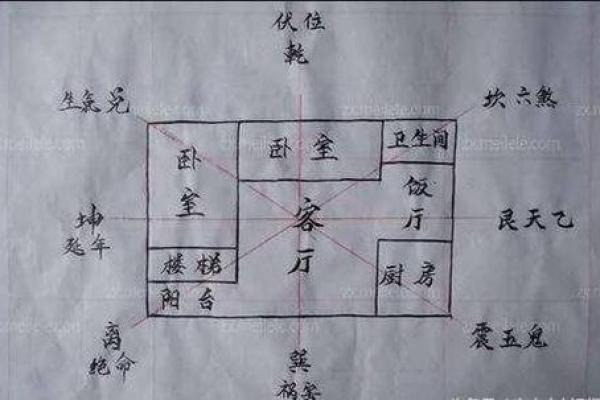 伏位
乾
生氣兑
坎六煞
卧室
卧室
卫生间
饭厅
坤
延年
客厅
艮天乙
楼梯
厨房
阳台
离
绝命
巽
祸害
震五鬼
zx.meilele.com
zx.meilele.com
zx.meilele.com